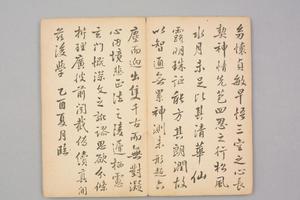 幼懷貞敏早悟三空之心長
契神情先苞四忍之行松風
水月未足比其清華仙
露明珠詎能方其朗潤故
以智通無累神測未形超六
塵而迥出隻千古而無對凝
心內境悲正法之陵遲栖慮
玄門慨深文之訛謬思欲分條
析理廣彼前聞截偽續真開
茲後學 乙酉夏月臨